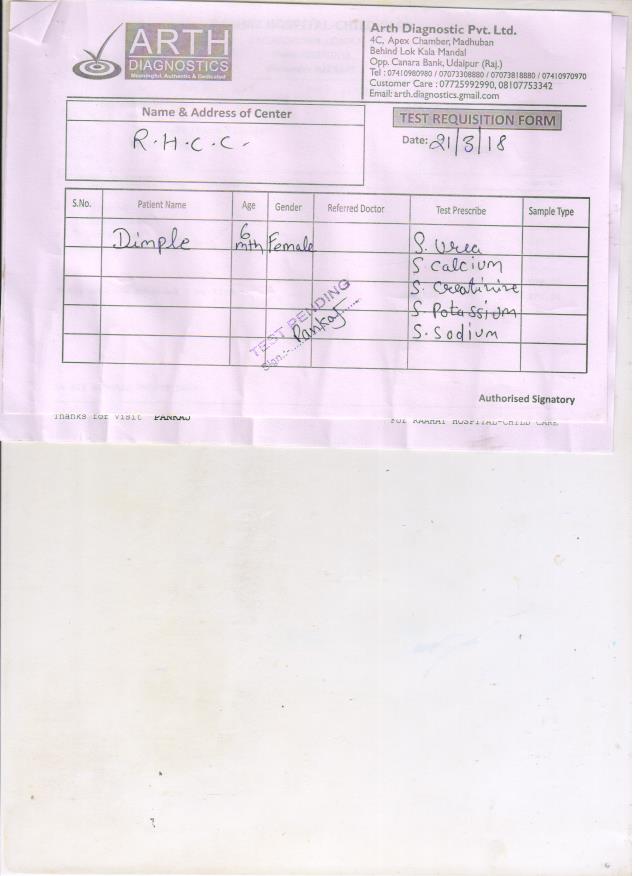 ARTH
DIAGNOSTICS
Meaningful, Authentic & Dedicated
Arth Diagnostic Pvt. Ltd.
4C, Apex Chamber, Madhuban
Behind Lok Kala Mandal
Opp. Canara Bank, Udaipur (Raj.)
Tel : 07410980980 / 07073308880 / 07073818880 / 07410970970
Customer Care : 07725992990, 08107753342
Email: arth.diagnostics.gmail.com
Name & Address of Center
R.H.C.C.
TEST REQUISITION FORM
Date: 21/3/18
S.No. Patient Name Age Gender Referred Doctor Test Prescribe Sample Type
Dimple 6 mth Female S. Urea
S calcium
S. creatinine
S. Potassium
S. Sodium
TEST PENDING
Sign.:- Pankaj
Authorised Signatory
Thanks for visit PANKAJ